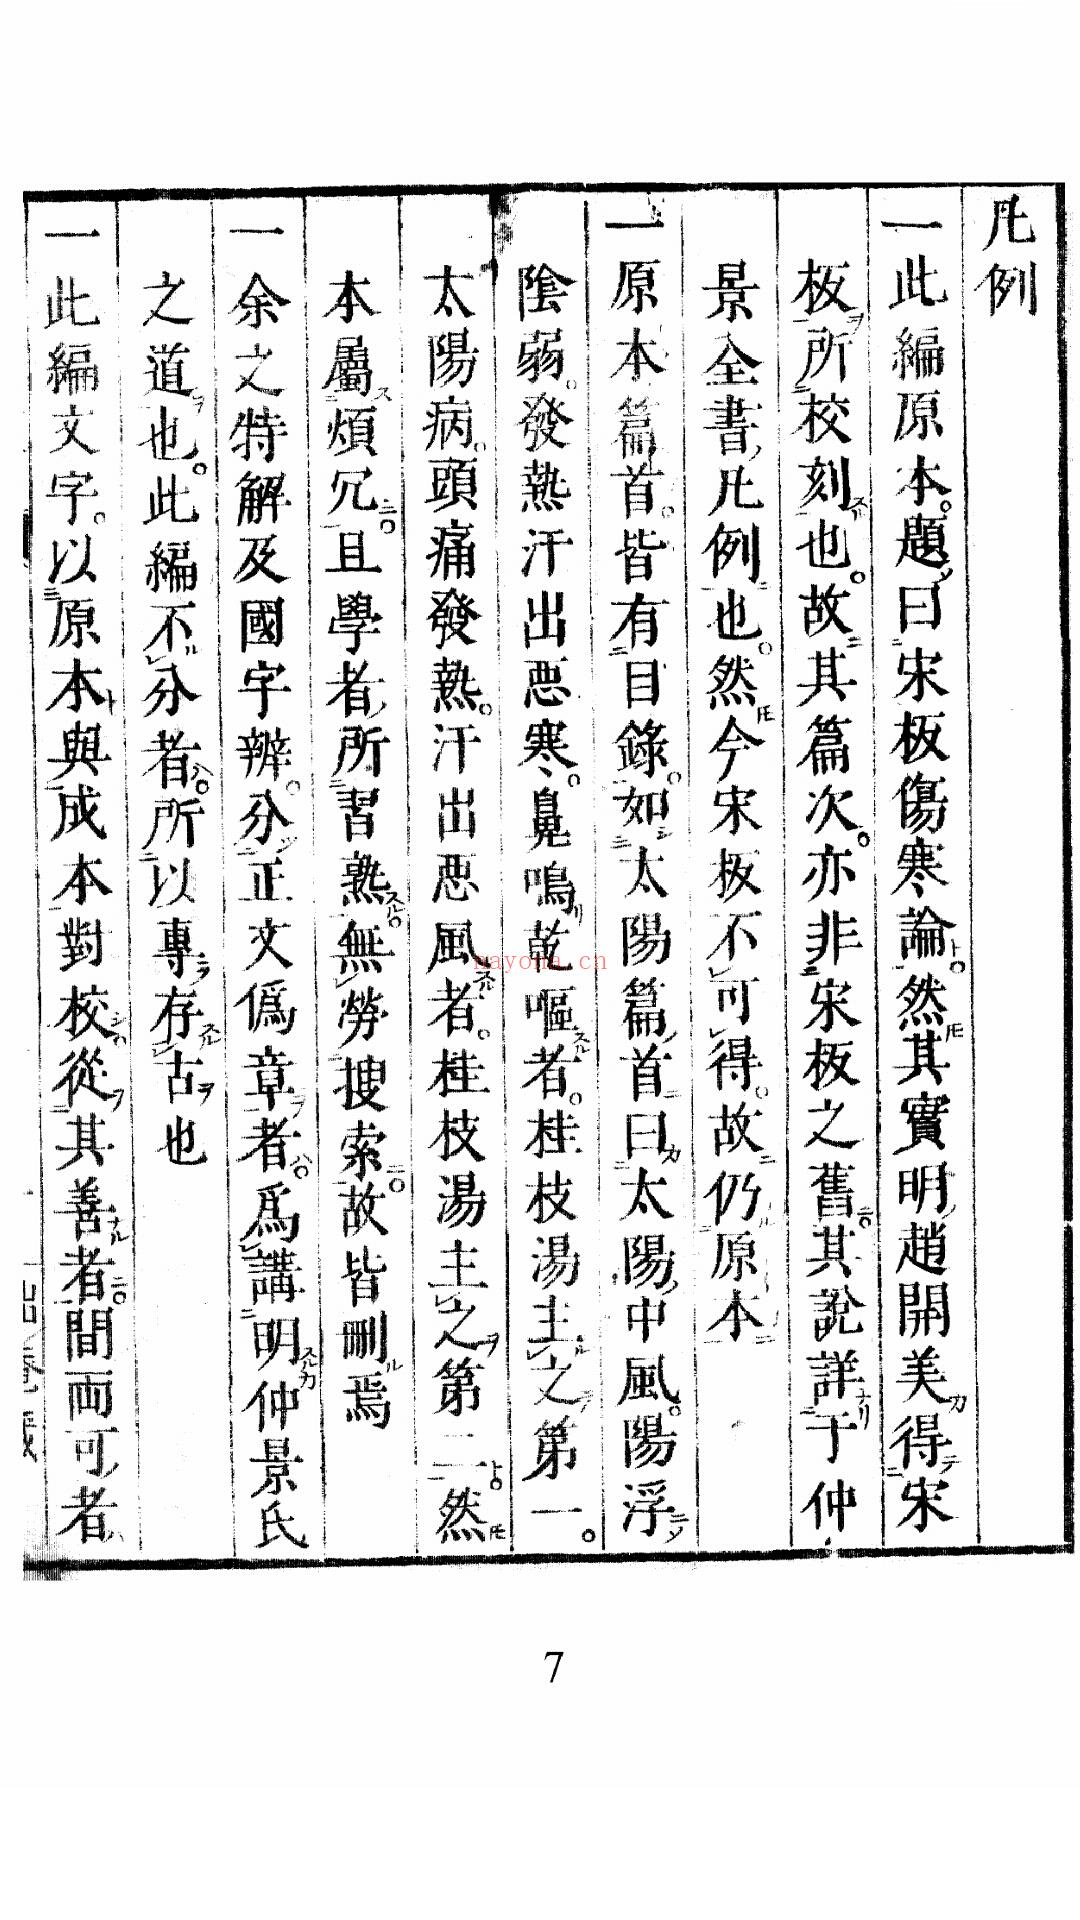 凡例
一此編原本題曰宋板傷寒論然其實明趙開美得宋
板所校刻也故其篇次亦非宋板之舊其說詳于仲
景全書凡例也然今宋板不可得故仍原本
一原本篇首皆有目錄如太陽篇首曰太陽中風陽浮
陰弱發熱汗出惡寒鼻鳴乾嘔者桂枝湯主之第一
太陽病頭痛發熱汗出惡風者桂枝湯主之第二然
本屬煩冗且學者所習熟無勞搜索故皆刪焉
一余之特解及國字辨分正文僞章者爲講明仲景氏
之道也此編不分者所以專存古也
一此編文字以原本與成本對校從其善者間両可者
nayona.cn
7